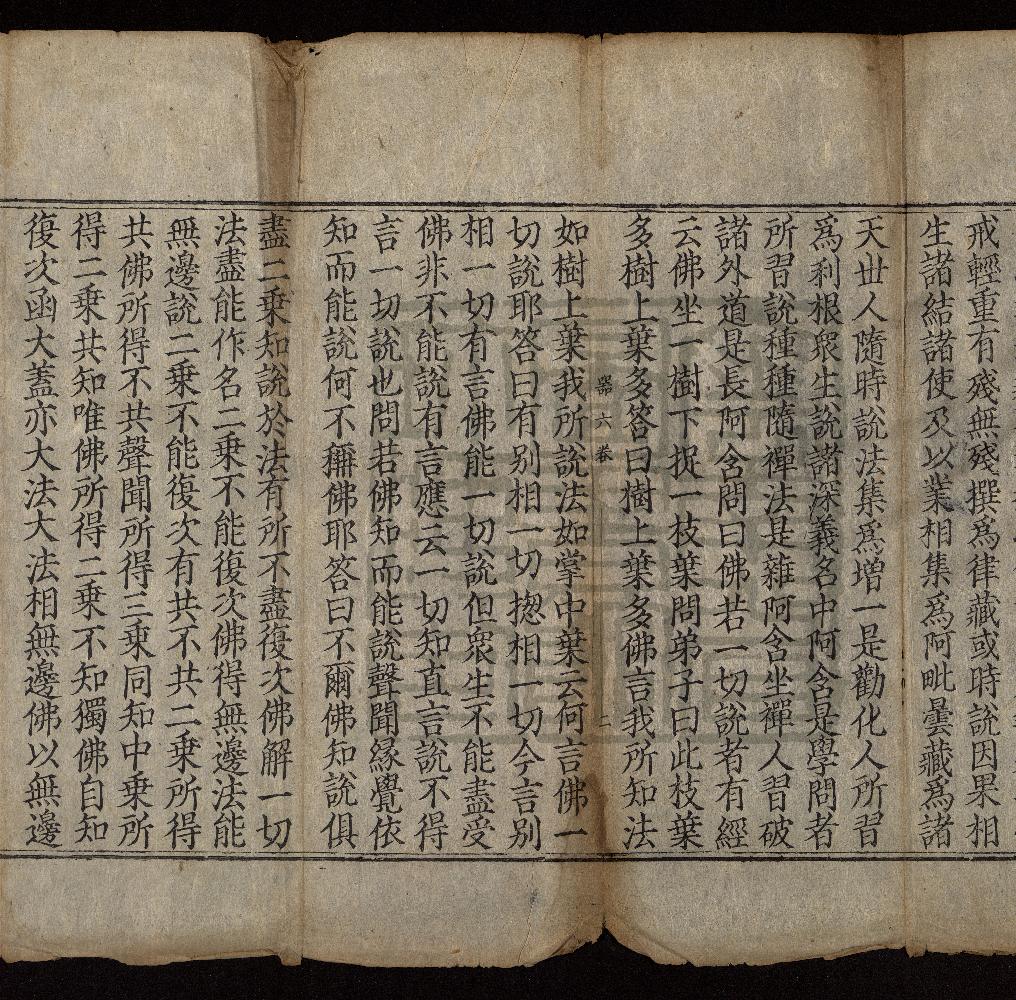 戒輕重有殘無殘撰爲律藏或時說因果相
生諸結諸使及以業相集爲阿毗曇藏爲諸
天世人隨時說法集爲增一是勸化人所習
爲利根衆生說諸深義名中阿含是學問者
所習說種種隨禪法是雜阿含坐禪人習破
諸外道是長阿含問曰佛若一切說者有經
云佛坐一樹下捉一枝葉問弟子曰此枝葉
多樹上葉多答曰樹上葉多佛言我所知法
器六卷 二
如樹上葉我所說法如掌中葉云何言佛一
切說耶答曰有別相一切揔相一切今言別
相一切有言佛能一切說但衆生不能盡受
佛非不能說有言應云一切知直言說不得
言一切說也問若佛知而能說聲聞緣覺依
知而能說何不稱佛耶答曰不爾佛知說俱
盡二乗知說於法有所不盡復次佛解一切
法盡能作名二乗不能復次佛得無邊法能
無邊說二乗不能復次有共不共二乗所得
共佛所得不共聲聞所得三乗同知中乗所
得二乗共知唯佛所得二乗不知獨佛自知
復次函大蓋亦大法大法相無邊佛以無邊